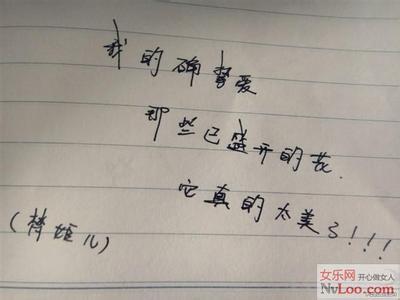 我的确挚爱
那些已盛开的花.
它真的太美了!!!
(棒姐儿)
女乐网 开心做女人
NvLoo.com